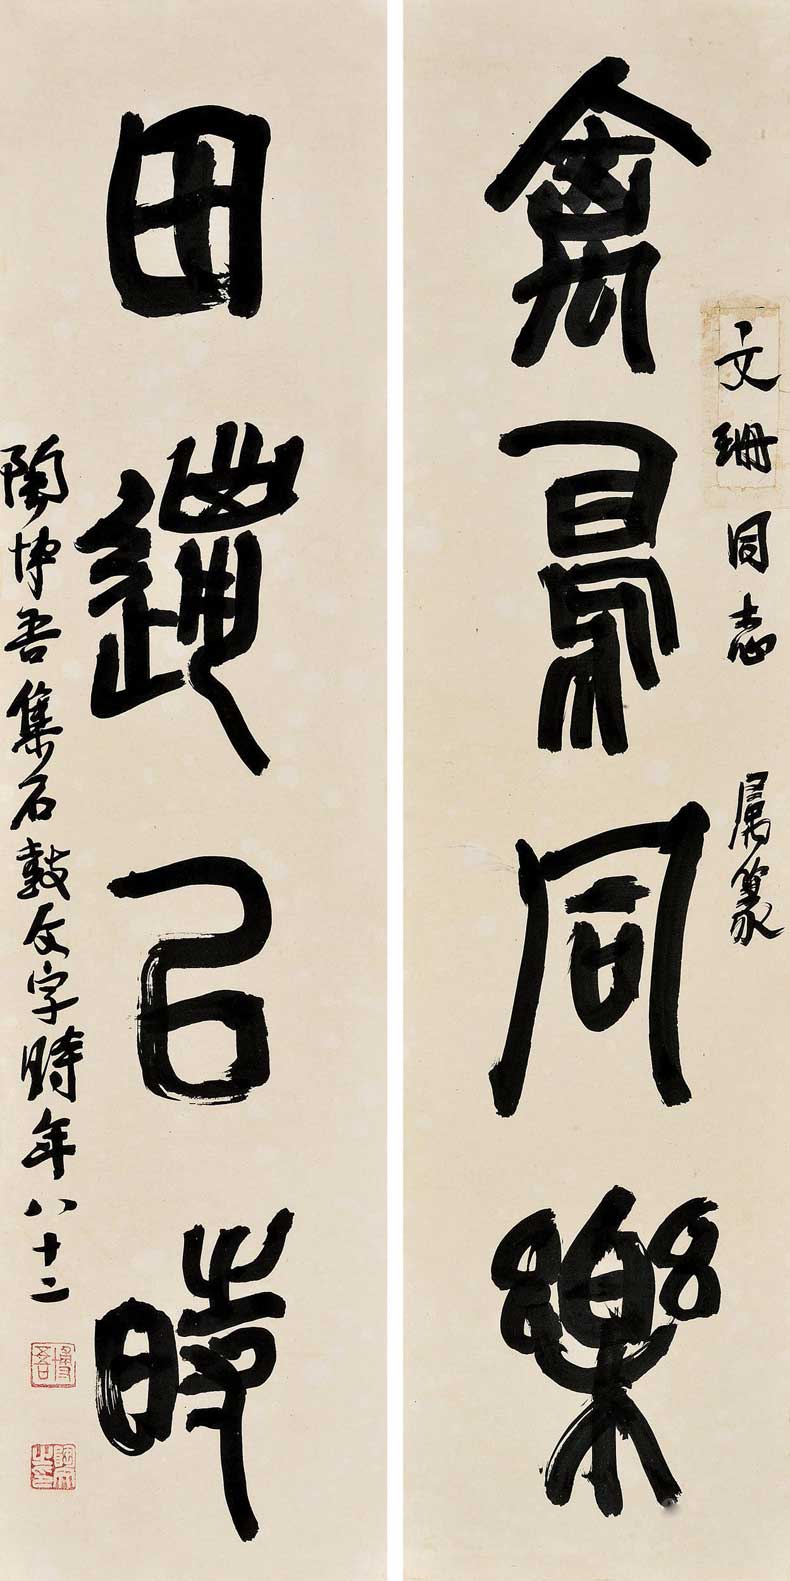 文珊同志 屬篆
禽同樂
田邋以時
陶博吾集石鼓文字時年八十二
博吾